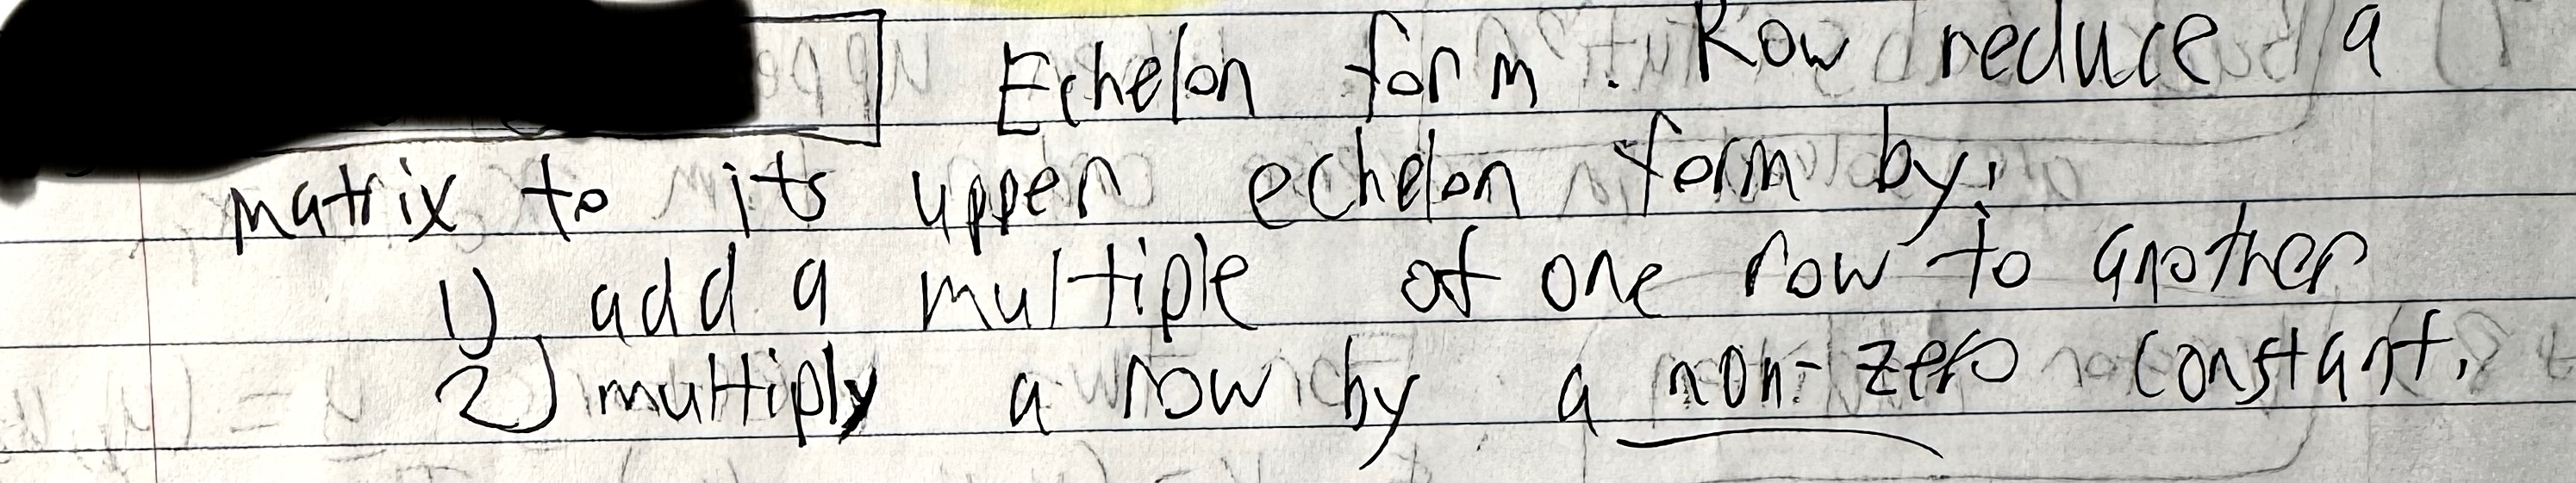 Echelon form. Row reduce a
matrix to its upper echelon form by:
1) add a multiple of one row to another
2) multiply a row by a non-zero constant.